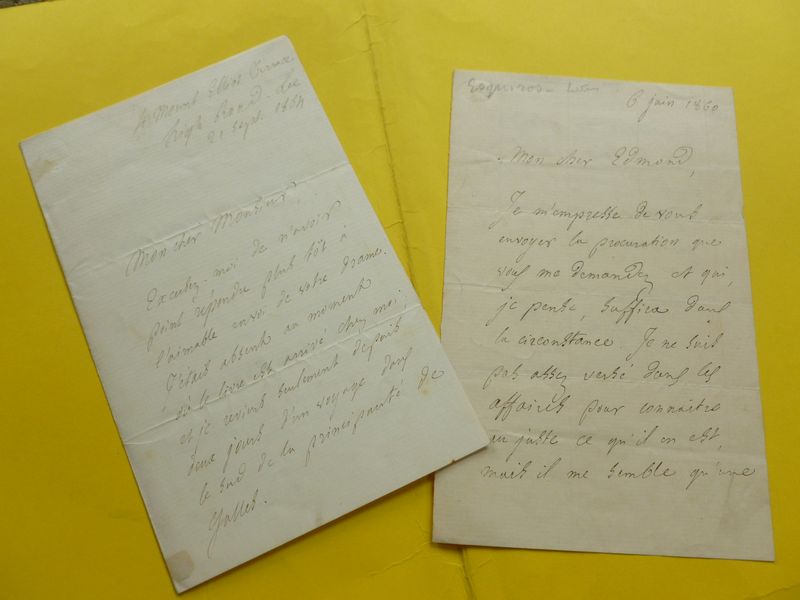 Mount Elliot Terrace
High Road - Lee
21 Sept. 1864
Mon cher Monsieur,
Excusez moi de n'avoir
point répondre plus tôt à
l'aimable envoi de votre drame.
J'étais absent au moment
où le livre est arrivé chez moi;
et je reviens seulement depuis
deux jours d'un voyage dans
le sud de la principauté de
Galles.
Esquiros
6 juin 1860
Mon cher Edmond,
Je m'empresse de vous
envoyer la procuration que
vous me demandez et qui,
je pense, suffira dans
la circonstance. Je ne suis
pas assez versé dans les
affaires pour connaitre
au juste ce qu'il en est,
mais il me semble qu'une